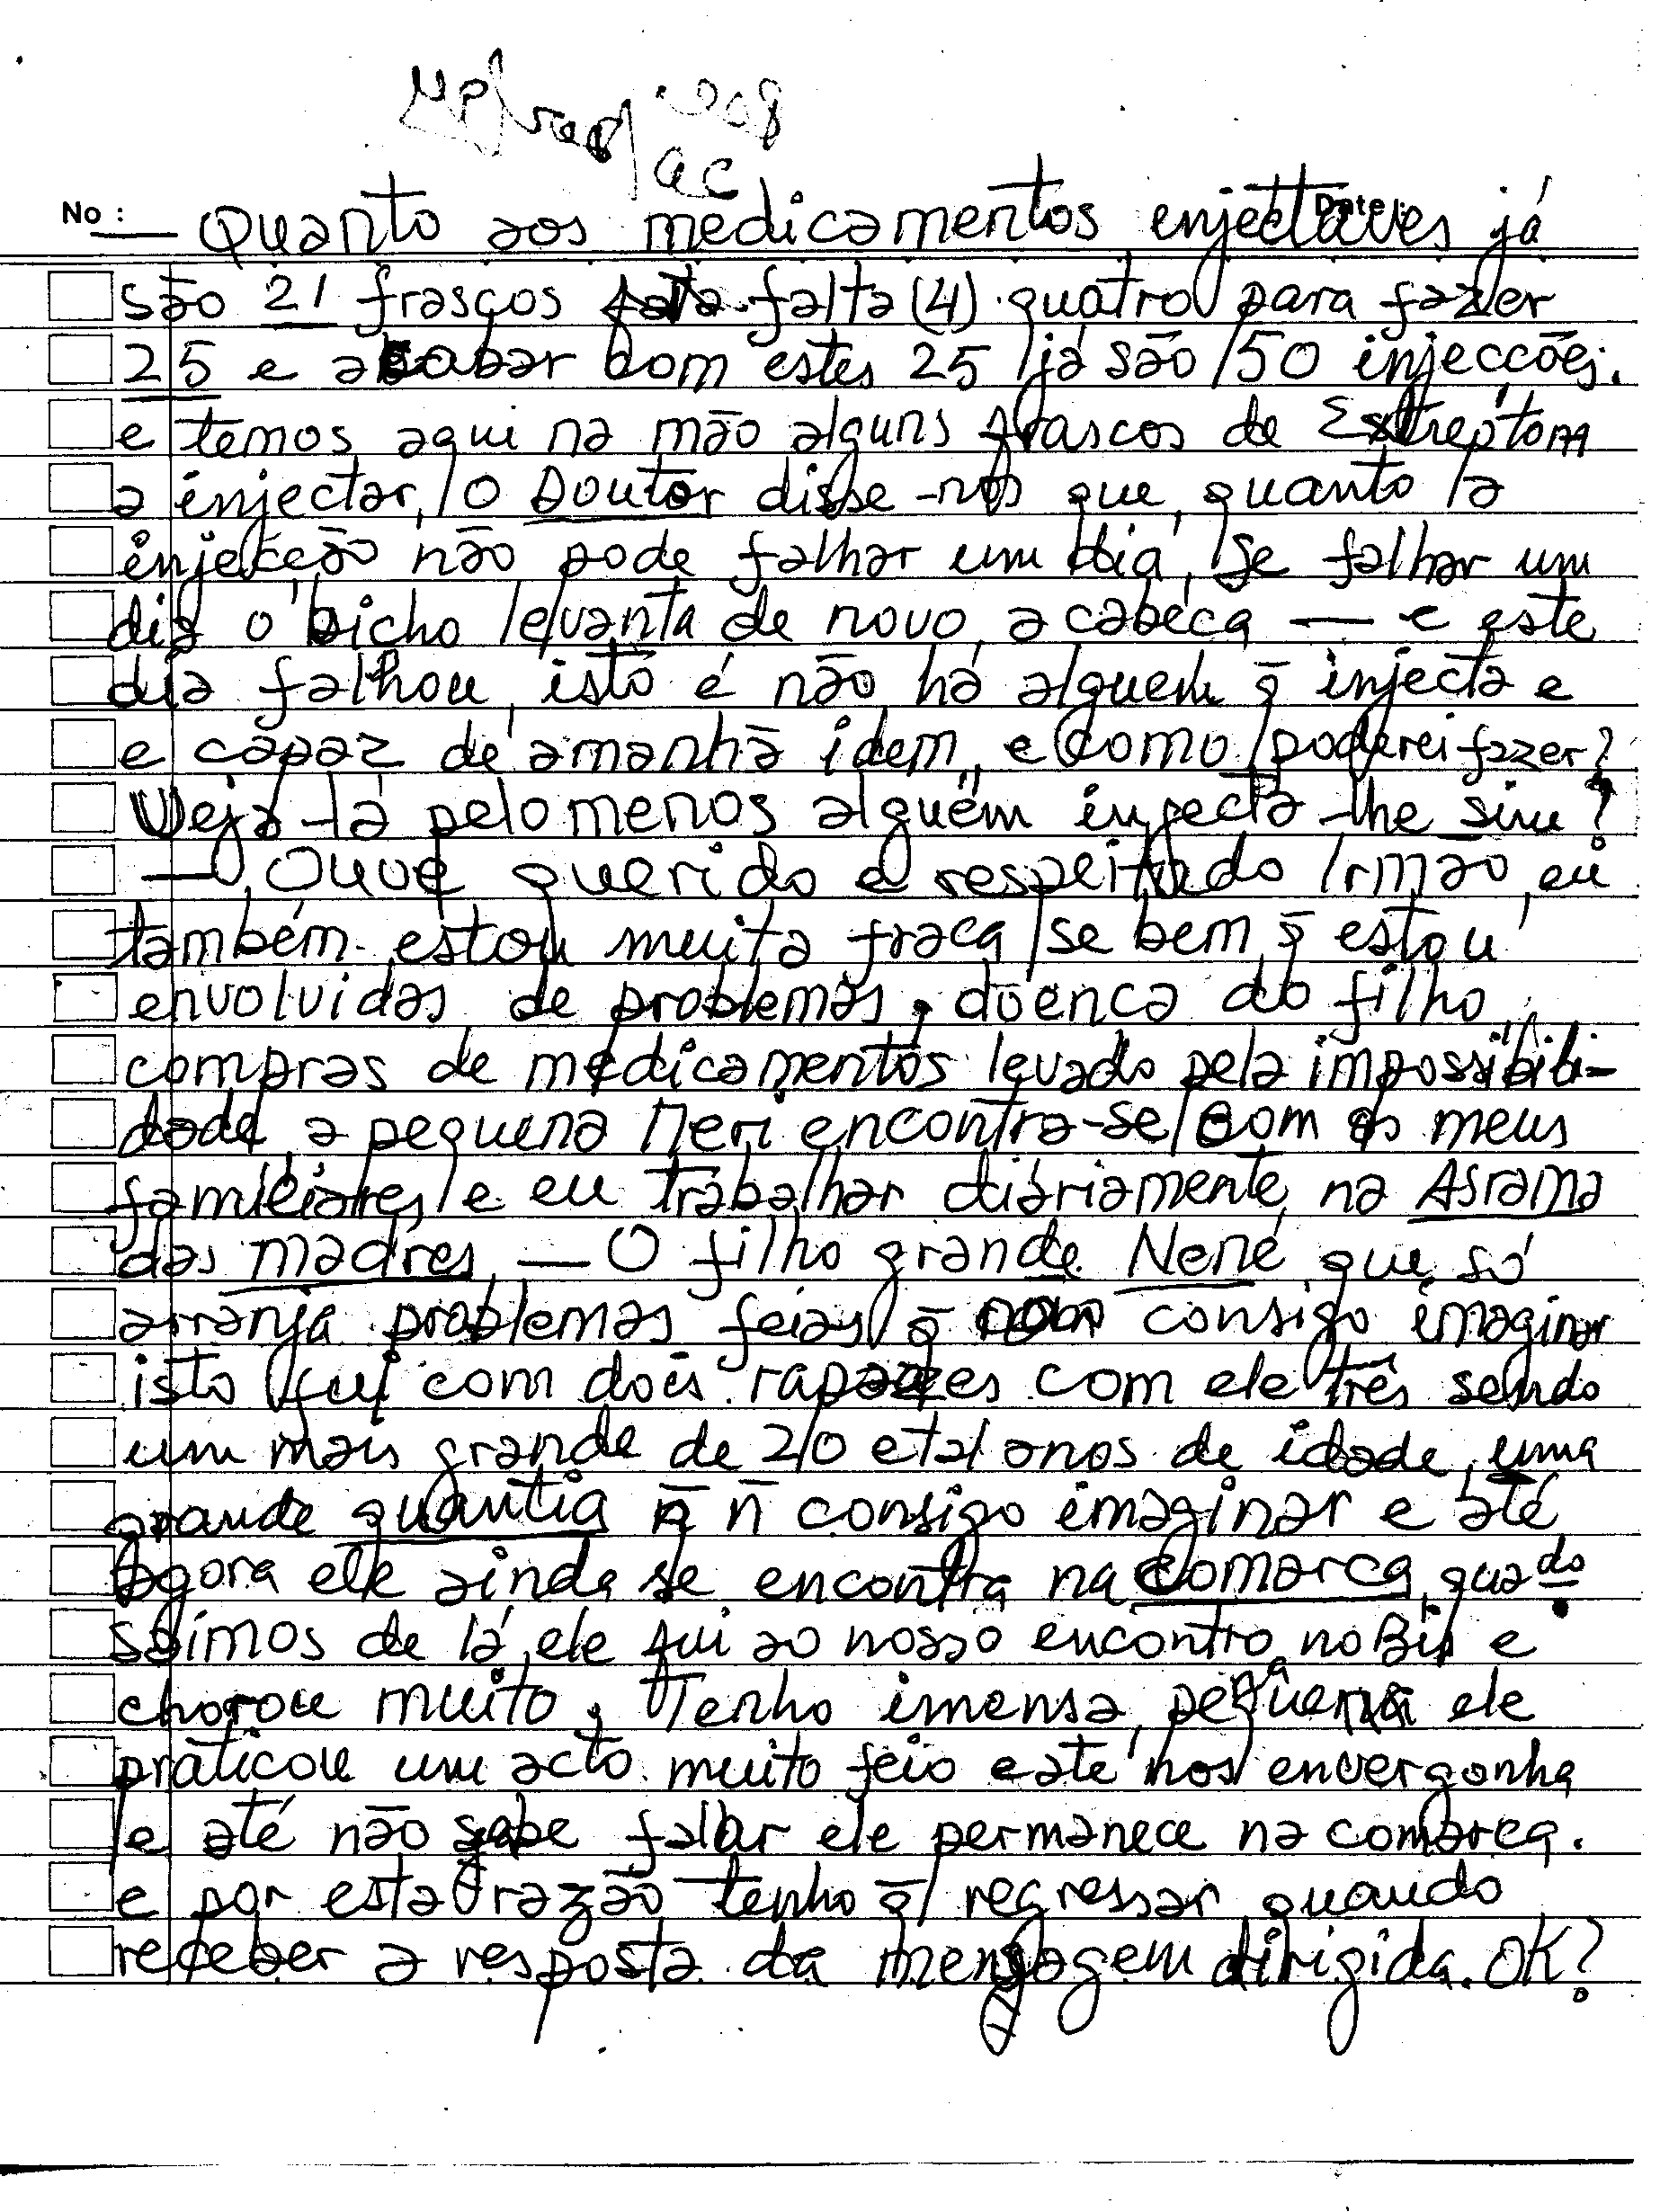 No : Date :
— Quanto aos medicamentos enjectáves já
são 21 frascos falta (4) quatro para fazer
25 e acabar com estes 25 já são 50 injecções.
e temos aqui na mão alguns frascos de Extreptom
a injectar, o Doutor disse-nos que, quanto a
injecção não pode falhar um dia, se falhar um
dia o bicho levanta de novo a cabeca — e este
dia falhou, isto é não há alguem q̄ injecta e
e capaz de amanhã idem, e como poderei fazer?
Veja-lá pelo menos alguém injecta-lhe sim?
— Ouve querido e respeitado Irmão, eu
também estou muita fraca se bem q̄ estou
envolvidas de problemas, doenca do filho
compras de medicamentos levado pela impossibili-
dade, a pequena Meri encontra-se com os meus
familiares e eu trabalhar diáriamente na Asrama
das madres — O filho grande Nené que só
arranja problemas feias q̄ não consigo imaginar
isto fui com dois rapazes com ele três sendo
um mais grande de 20 e tal anos de idade, uma
grande quantia q̄ ñ consigo imaginar e até
agora ele ainda se encontra na Comarca, quado
saímos de lá, ele fui ao nosso encontro no Bis e
chorou muito, Tenho imensa pena ele
práticou um acto muito feio e até nos envergonha
e até não sabe falar ele permanece na comarca.
e por esta razão tenho q̄ regressar quando
receber a resposta da mensagem dirigida. OK?